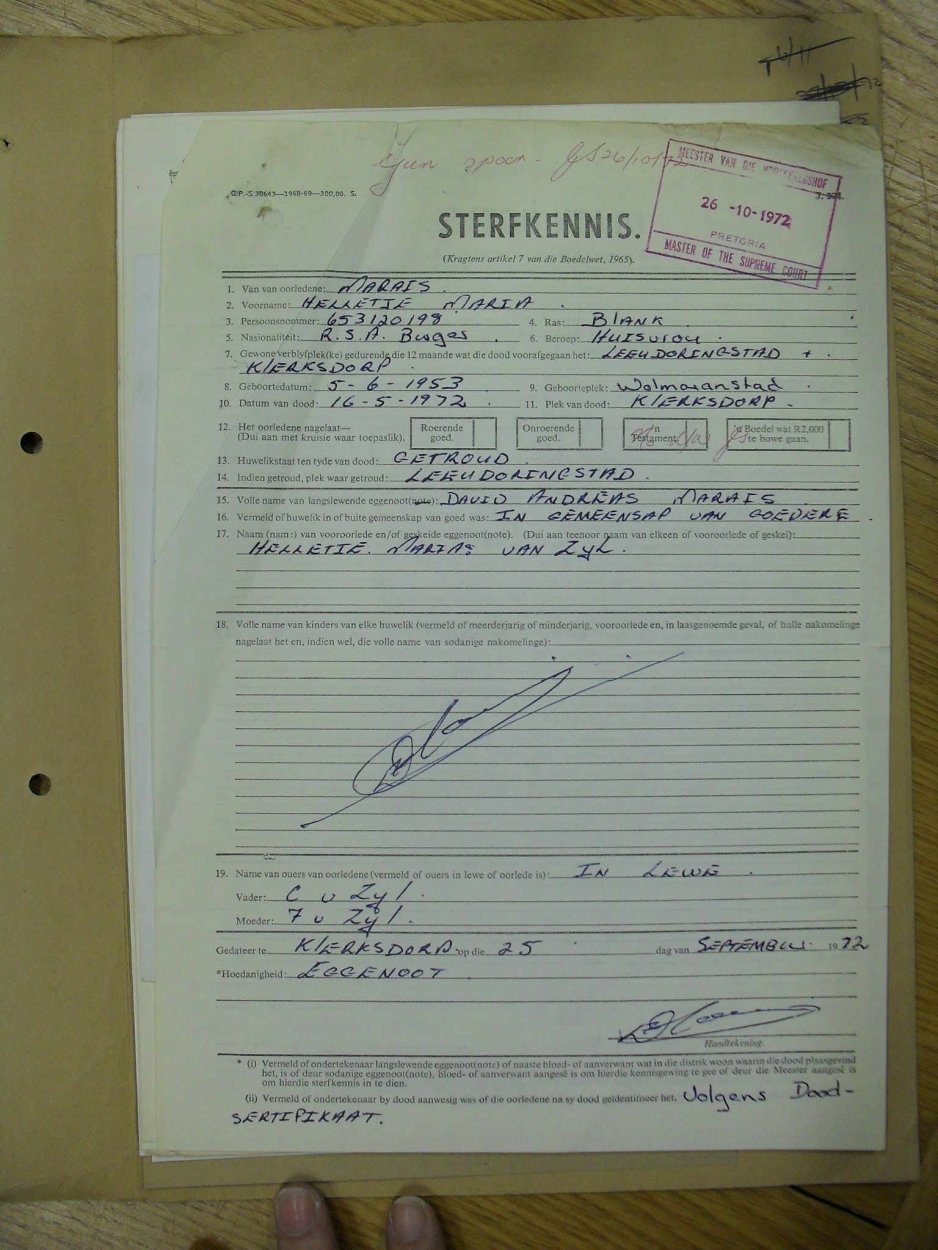 6/11
Geen spoor - GS 26/10/72
MEESTER VAN DIE HOOGGEREGSHOF
26 -10- 1972
PRETORIA
MASTER OF THE SUPREME COURT
G.P.-S.30643—1968-69—300,00. S.
STERFKENNIS.
(Kragtens artikel 7 van die Boedelwet, 1965).
1. Van van oorledene: MARAIS.
2. Voorname: HELLETJE MARIA.
3. Persoonsnommer: 653120198 4. Ras: BLANK
5. Nasionaliteit: R.S.A. Burger 6. Beroep: HUISVROU.
7. Gewone verblyfplek(ke) gedurende die 12 maande wat die dood voorafgegaan het: LEEUDORINGSTAD +
KLERKSDORP
8. Geboortedatum: 5-6-1953 9. Geboorteplek: Wolmaranstad
10. Datum van dood: 16-5-1972 11. Plek van dood: KLERKSDORP.
12. Het oorledene nagelaat— Roerende goed. Onroerende goed. 'n Testament. 'n Boedel wat R2,000 te bowe gaan.
(Dui aan met kruisie waar toepaslik).
13. Huwelikstaat ten tyde van dood: GETROUD.
14. Indien getroud, plek waar getroud: LEEUDORINGSTAD.
15. Volle name van langslewende eggenoot(note): DAVID ANDREAS MARAIS
16. Vermeld of huwelik in of buite gemeenskap van goed was: IN GEMEENSAP VAN GOEDERE.
17. Naam (name) van vooroorlede en/of geskeide eggenoot(note). (Dui aan teenoor naam van elkeen of vooroorlede of geskei):
HELLETJE MARIA VAN ZYL.
18. Volle name van kinders van elke huwelik (vermeld of meerderjarig of minderjarig, vooroorlede en, in laasgenoemde geval, of hulle nakomelinge
nagelaat het en, indien wel, die volle name van sodanige nakomelinge):
19. Name van ouers van oorledene (vermeld of ouers in lewe of oorlede is): IN LEWE.
Vader: C v Zyl.
Moeder: J v Zyl.
Gedateer te KLERKSDORP op die 25 dag van SEPTEMBER 1972
*Hoedanigheid: EGGENOOT
Handtekening.
* (i) Vermeld of ondertekenaar langslewende eggenoot(note) of naaste bloed- of aanverwant wat in die distrik woon waarin die dood plaasgevind
het, is of deur sodanige eggenoot(note), bloed- of aanverwant aangesê is om hierdie kennisgewing te gee of deur die Meester aangesê is
om hierdie sterfkennis in te dien.
(ii) Vermeld of ondertekenaar by dood aanwesig was of die oorledene na sy dood geïdentifiseer het. Volgens Dood-
SERTIFIKAAT.